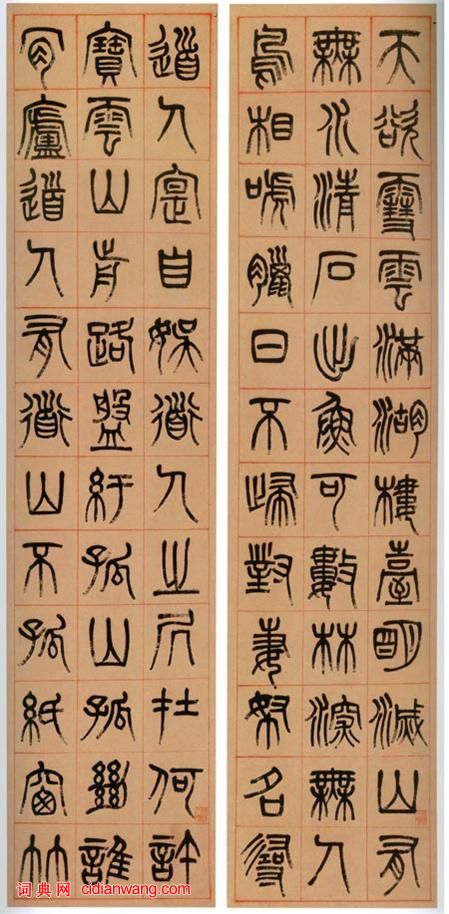 天欲雪雲滿湖樓臺明滅山有
無水清石出魚可數林深無人
鳥相嘑臘日不歸對妻孥名尋
道人寔自娛道人之凥在何許
寶雲山前路盤紆孤山孤絕誰
肯廬道人有道山不孤紙窗竹
词典网 cidianwang.com